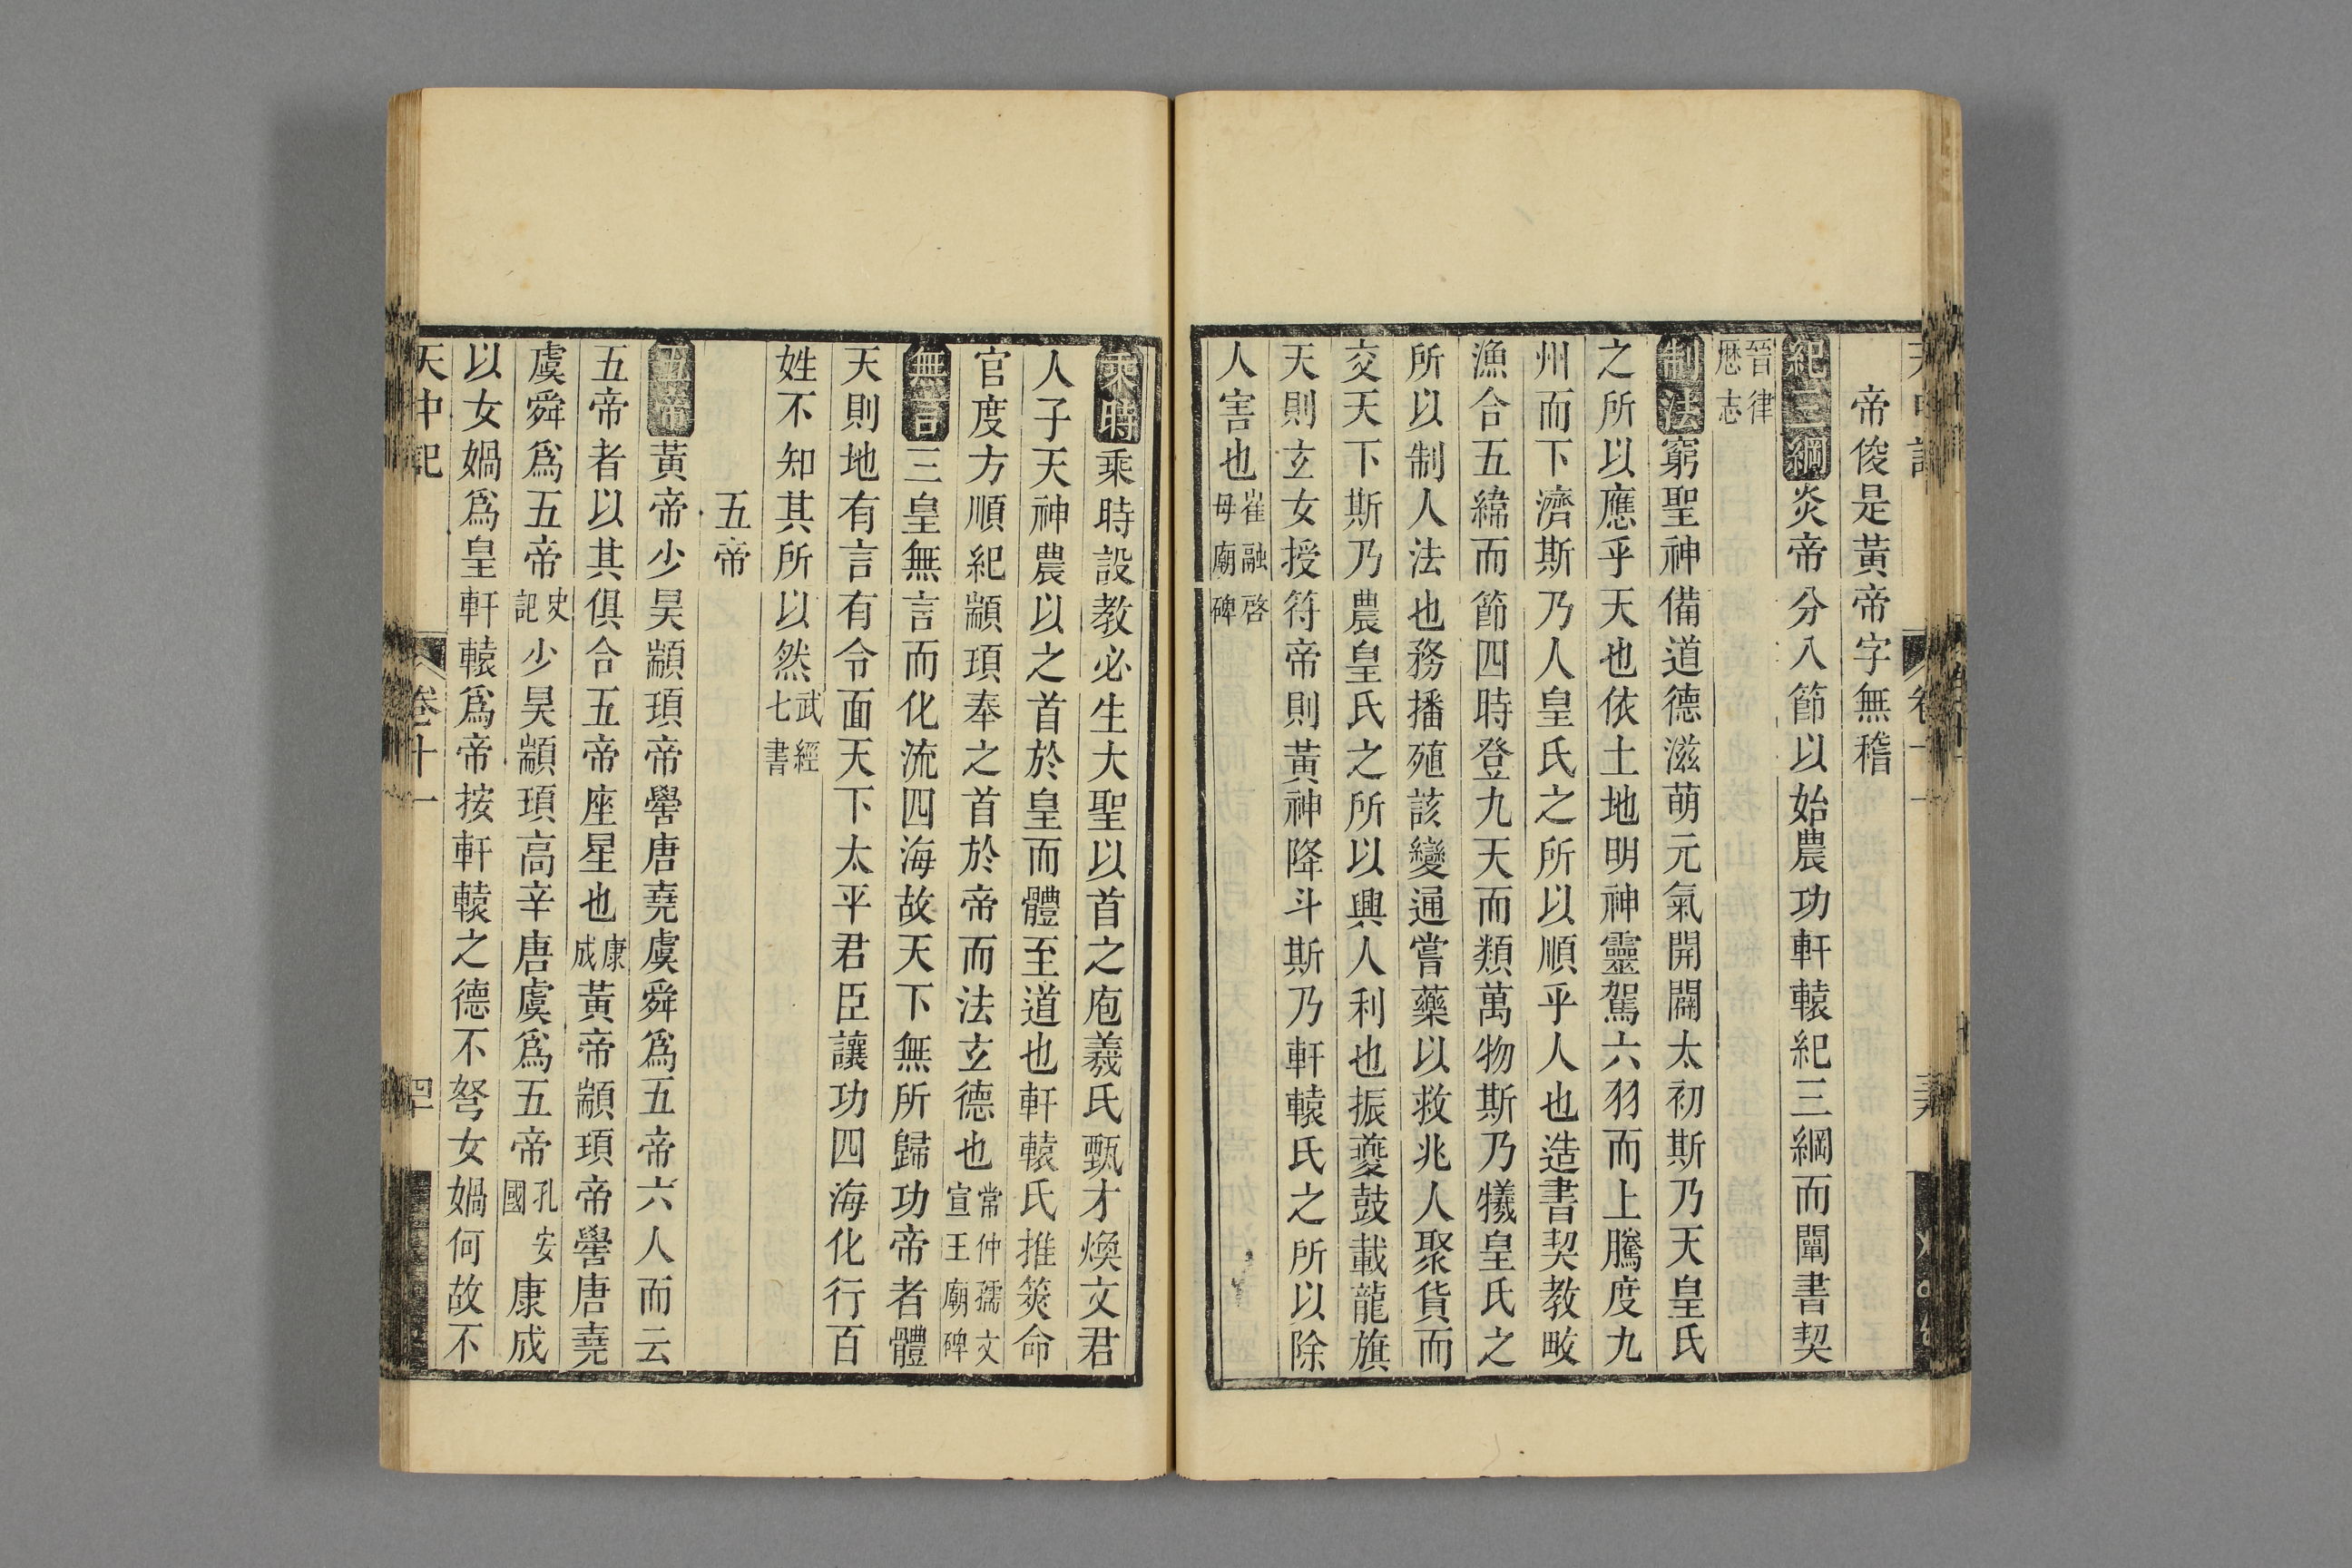 帝俊是黃帝字無稽
紀三綱炎帝分八節以始農功軒轅紀三綱而闡書契
晉律
厯志
制法窮聖神備道德滋萌元氣開闢太初斯乃天皇氏
之所以應乎天也依土地明神靈駕六羽而上騰度九
州而下濟斯乃人皇氏之所以順乎人也造書契教畋
漁合五緯而節四時登九天而類萬物斯乃犧皇氏之
所以制人法也務播殖該變通嘗藥以救兆人聚貨而
交天下斯乃農皇氏之所以興人利也振夔鼓載龍旗
天則玄女授符帝則黃神降斗斯乃軒轅氏之所以除
人害也崔融啓
母廟碑
乘時乘時設教必生大聖以首之庖羲氏甄才煥文君
人子天神農以之首於皇而體至道也軒轅氏推筴命
官度方順紀顓頊奉之首於帝而法玄德也常仲孺文
宣王廟碑
無言三皇無言而化流四海故天下無所歸功帝者體
天則地有言有令面天下太平君臣讓功四海化行百
姓不知其所以然武經
七書
五帝
五帝黃帝少昊顓頊帝嚳唐堯虞舜爲五帝六人而云
五帝者以其俱合五帝座星也康
成黃帝顓頊帝嚳唐堯
虞舜爲五帝史
記少昊顓頊高辛唐虞爲五帝孔安
國康成
以女媧爲皇軒轅爲帝按軒轅之德不弩女媧何故不
天中記
卷十一
四